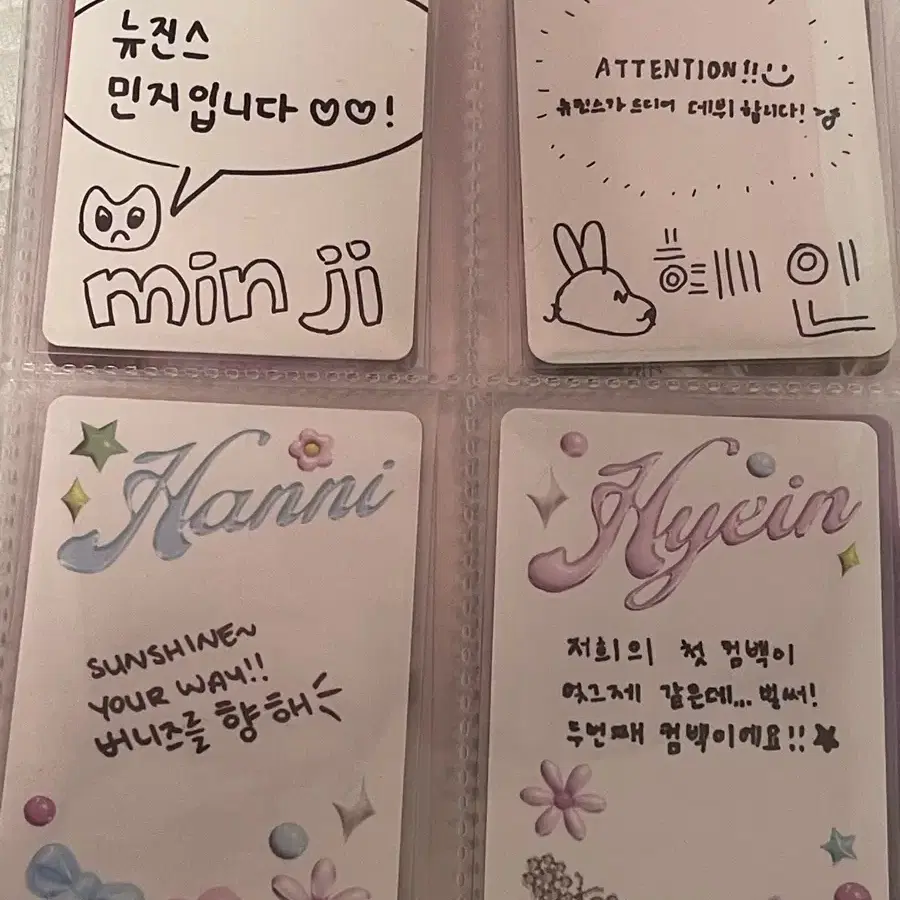 뉴진스
민지입니다 ♡♡!
minji
ATTENTION!!
뉴진스가 드디어 데뷔 합니다!
혜인
Hanni
SUNSHINE~
YOUR WAY!!
버니즈를 향해
Hyein
저희의 첫 컴백이
엊그제 같은데... 벌써!
두번째 컴백이에요!!